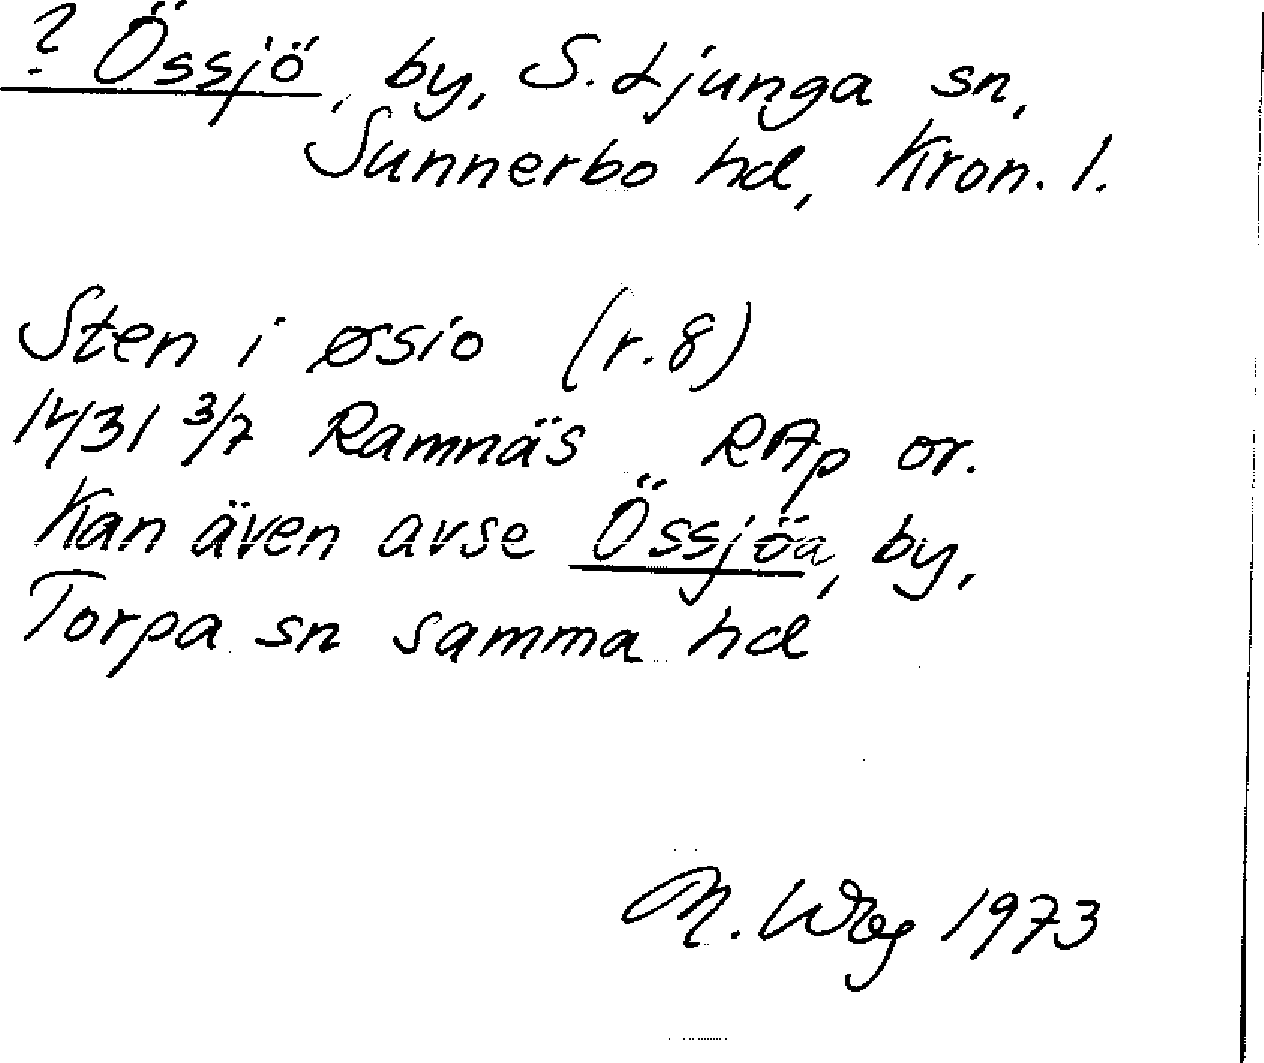 ? Össjö, by, S. Ljunga sn,
Sunnerbo hd, Kron. l.
Sten i øsio (r. 8)
1431 3/7 Ramnäs RAp or.
Kan även avse Össjöa, by,
Torpa sn samma hd
M. 1973